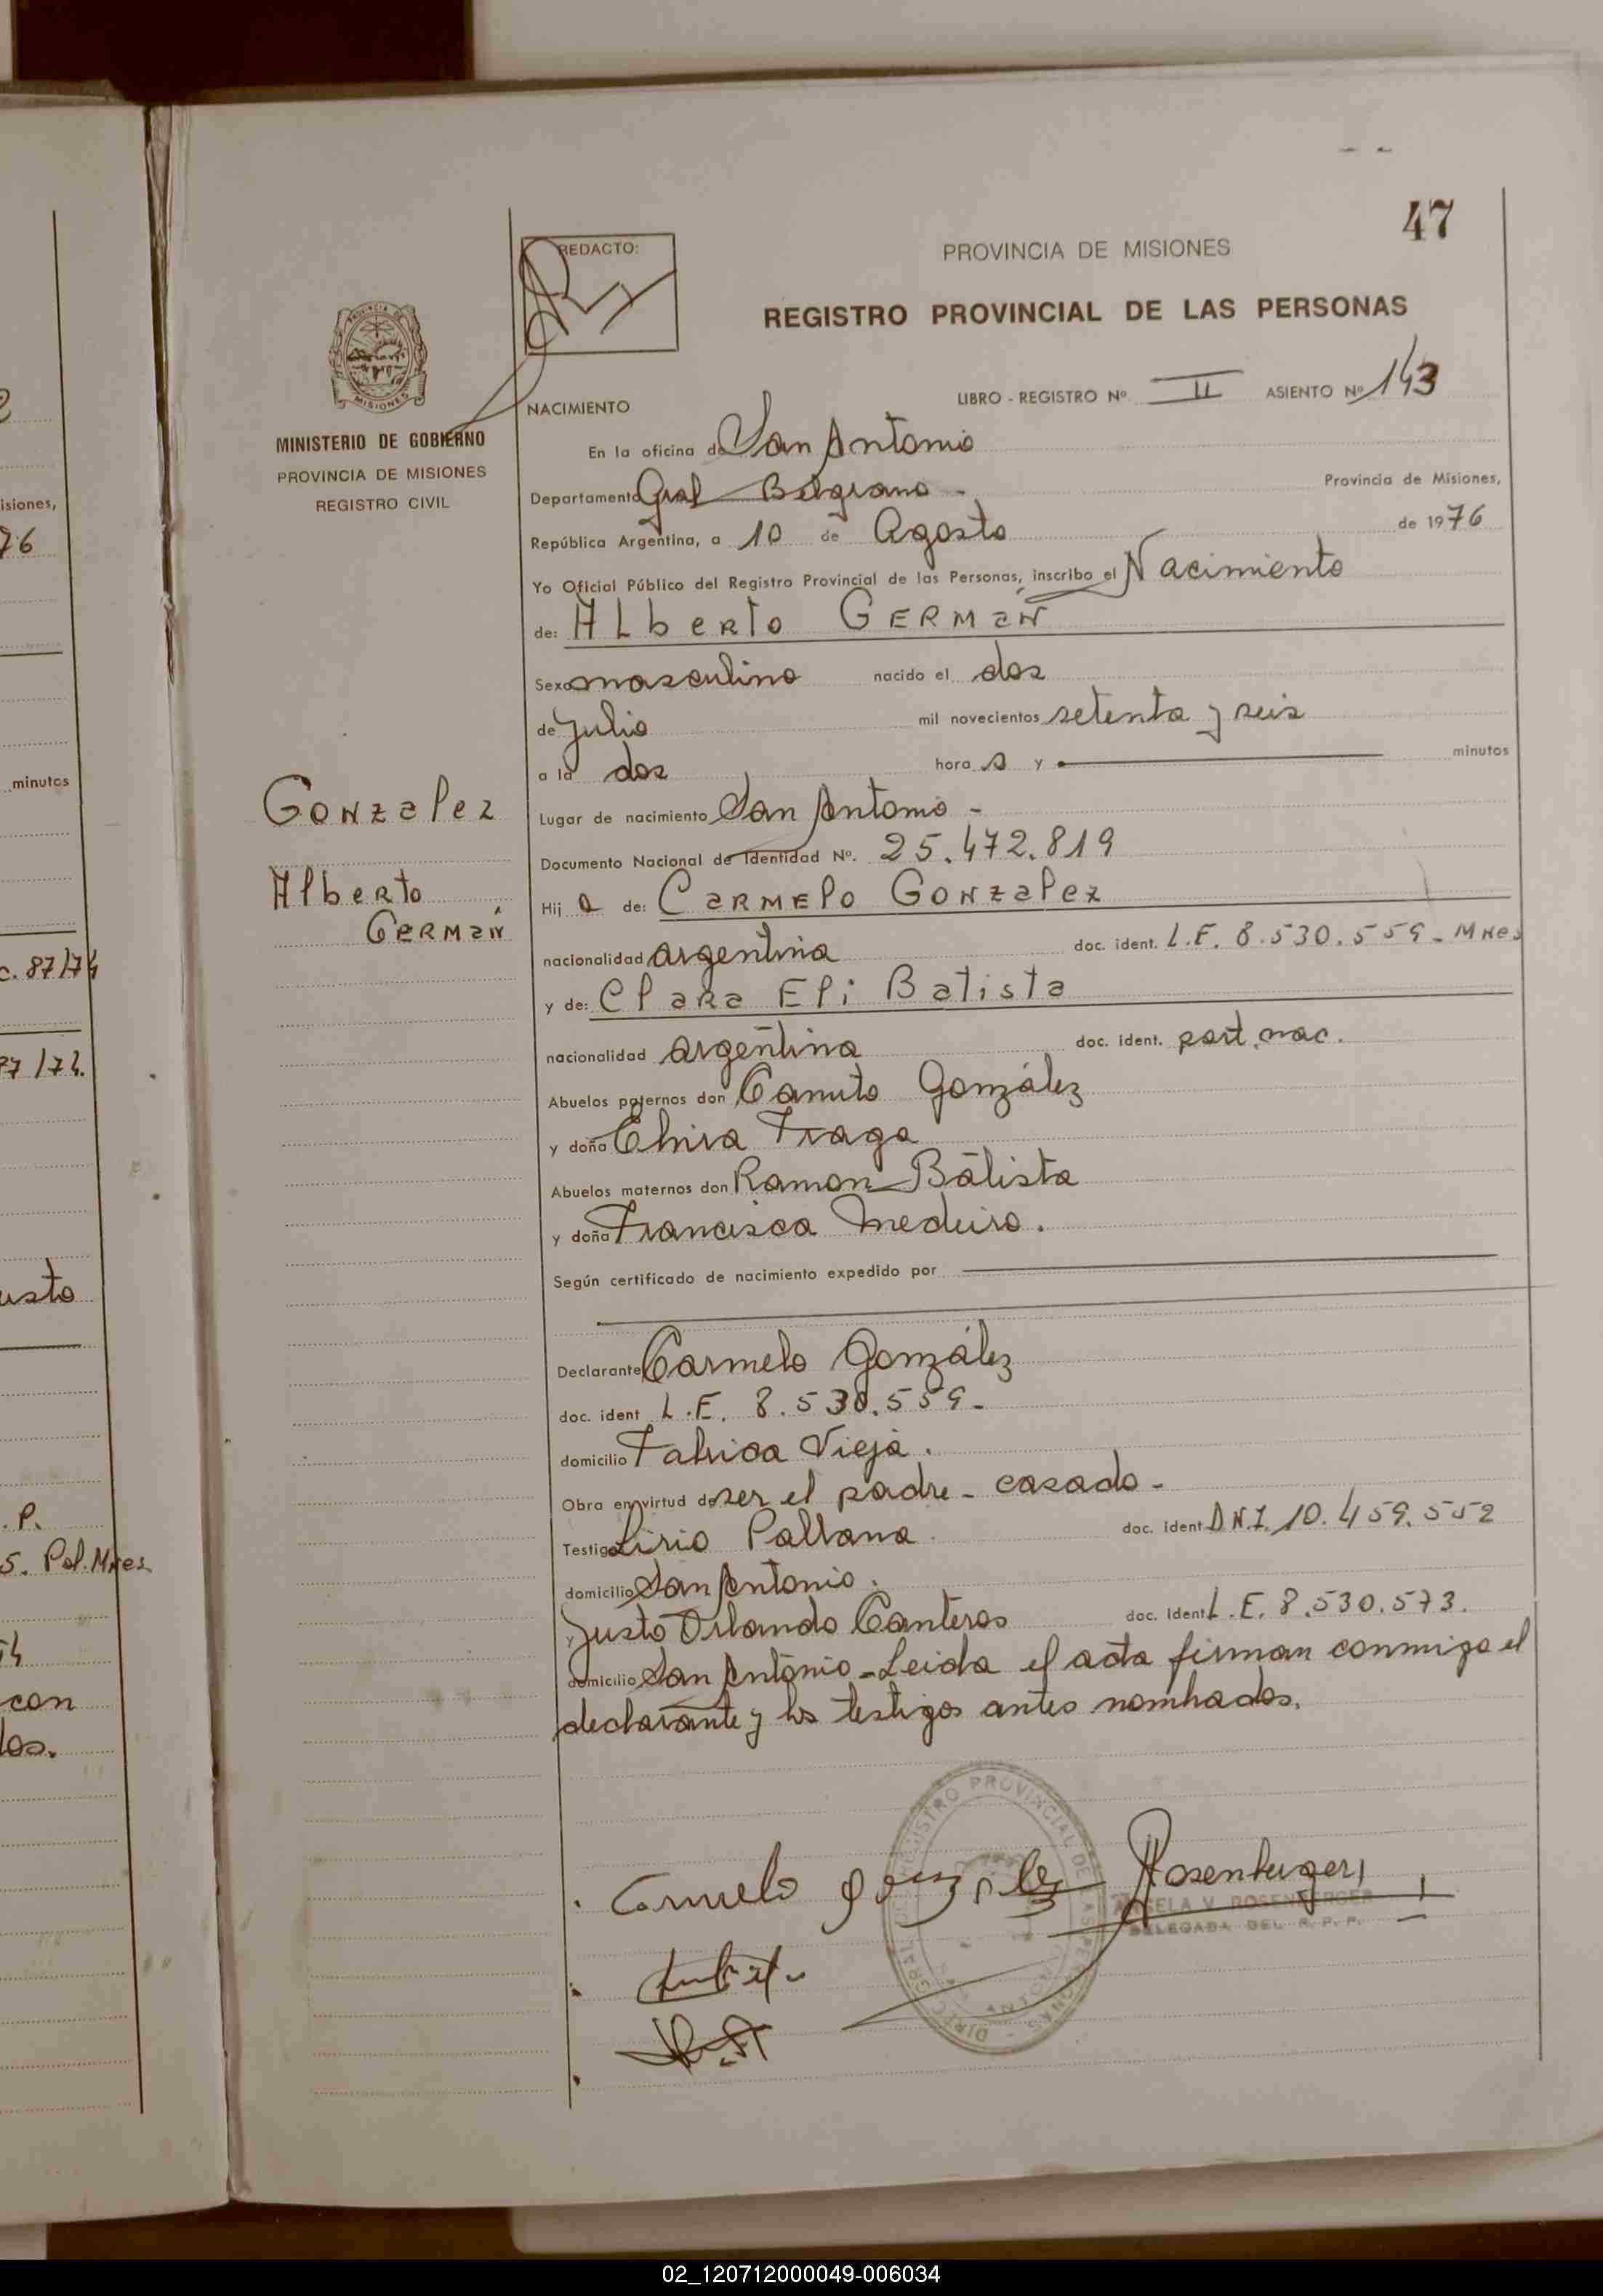 47
REDACTO:
PROVINCIA DE MISIONES
REGISTRO PROVINCIAL DE LAS PERSONAS
LIBRO - REGISTRO Nº II ASIENTO Nº 143
MISIONES
MINISTERIO DE GOBIERNO
PROVINCIA DE MISIONES
REGISTRO CIVIL
NACIMIENTO
En la oficina de San Antonio
Departamento Gral Belgrano - Provincia de Misiones,
República Argentina, a 10 de Agosto de 1976
Yo Oficial Público del Registro Provincial de las Personas, inscribo el Nacimiento
de: Alberto Germán
Sexo masculino nacido el dos
de Julio mil novecientos setenta y seis
a la dos hora s y minutos
Gonzalez
Alberto
Germán
Lugar de nacimiento San Antonio -
Documento Nacional de Identidad Nº. 25.472.819
Hij o de: Carmelo Gonzalez
nacionalidad argentina doc. ident. L.E. 8.530.559 - Mnes
y de: Clara Eli Batista
nacionalidad argentina doc. ident. part. nac.
Abuelos paternos don Canuto González
y doña Elvira Fraga
Abuelos maternos don Ramon Batista
y doña Francisca Medeiro.
Según certificado de nacimiento expedido por
Declarante Carmelo González
doc. ident L.E. 8.530.559 -
domicilio Fabrica Vieja.
Obra en virtud de ser el padre - casado -
Testigo Lirio doc. ident D.N.I. 10.459.552
domicilio San Antonio.
y Justo Orlando Canteros doc. ident L.E. 8.530.573.
domicilio San Antonio - Leida el acta firman conmigo el
declarante y los testigos antes nombrados.
Carmelo gonzalez
Rosenberger
ANGELA V. ROSENBERGER
DELEGADA DEL R. P. P.
REGISTRO PROVINCIAL DE LAS PERSONAS
isiones,
76
minutos
c. 87/74
87/74.
usto
. P.
5. Pol. Mnes
con
los.
02_120712000049-006034